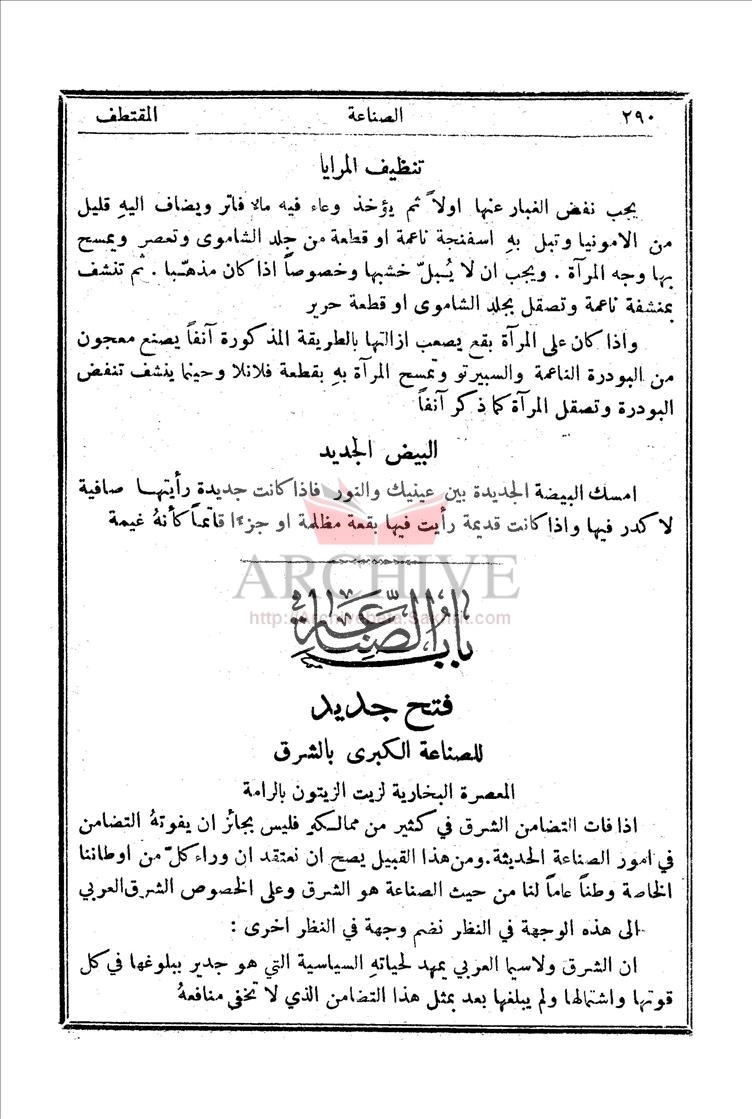 ٢٩٠ الصناعة المقتطف
تنظيف المرايا
يجب نفض الغبار عنها اولاً ثم يؤخذ وعاء فيه ماء فاتر ويضاف اليهِ قليل
من الامونيا وتبل بهِ اسفنجة ناعمة او قطعة من جلد الشاموى وتعصر ويمسح
بها وجه المرآة . ويجب ان لا يُبلّ خشبها وخصوصاً اذا كان مذهّبا . ثم تنشف
بمنشفة ناعمة وتصقل بجلد الشاموى او قطعة حرير
واذا كان على المرآة بقع يصعب ازالتها بالطريقة المذكورة آنفاً يصنع معجون
من البودرة الناعمة والسبيرتو وتمسح المرآة بهِ بقطعة فلانلا وحينما ينشف تنفض
البودرة وتصقل المرآة كما ذكر آنفاً
البيض الجديد
امسك البيضة الجديدة بين عينيك والنور فاذا كانت جديدة رأيتها صافية
لا كدر فيها واذا كانت قديمة رأيت فيها بقعة مظلمة او جزءًا قاتماً كأنهُ غيمة
ARCHIVE
http://Archivebeta.Sakhrit.com
باب الصناعة
فتح جديد
للصناعة الكبرى بالشرق
المعصرة البخارية لزيت الزيتون بالرامة
اذا فات التضامن الشرق في كثير من ممالكهِ فليس بجائز ان يفوتهُ التضامن
في امور الصناعة الحديثة. ومن هذا القبيل يصح ان نعتقد ان وراء كلّ من اوطاننا
الخاصة وطناً عاماً لنا من حيث الصناعة هو الشرق وعلى الخصوص الشرق العربي
الى هذه الوجهة في النظر نضم وجهة في النظر اخرى :
ان الشرق ولاسيما العربي يمهد لحياتهِ السياسية التي هو جدير ببلوغها في كل
قوتها واشتمالها ولم يبلغها بعد بمثل هذا التضامن الذي لا تخفى منافعهُ